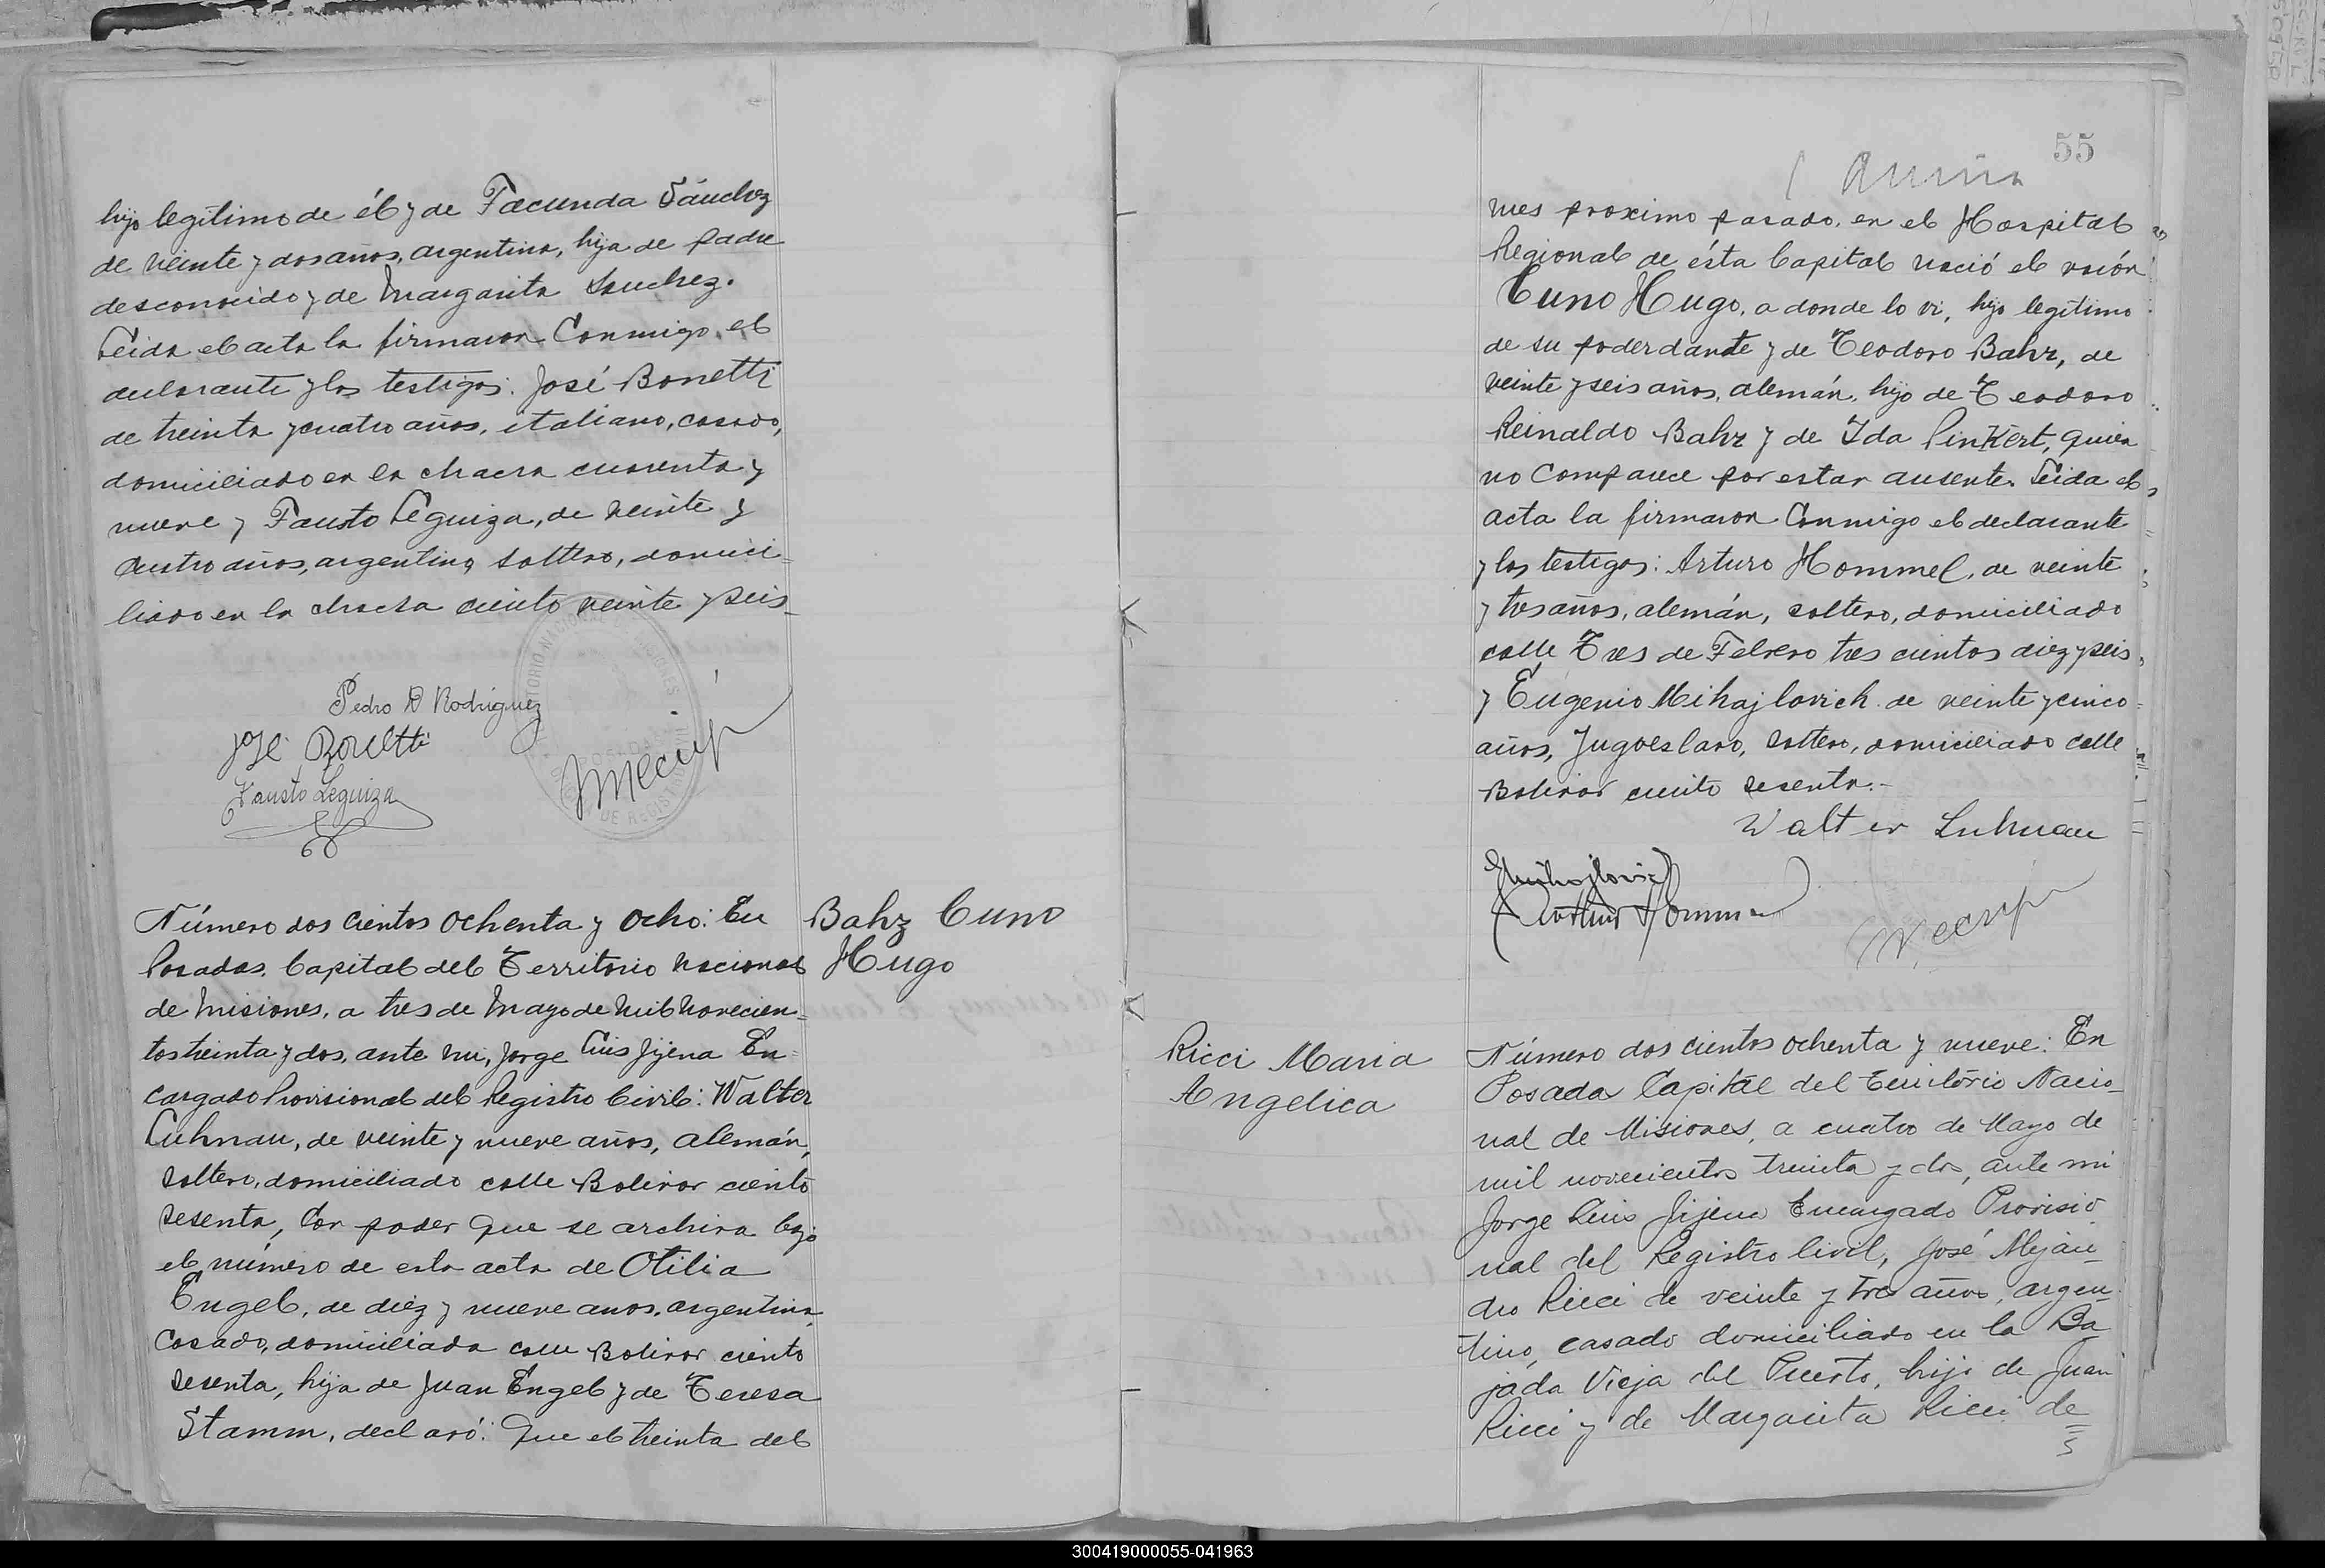 hijo legítimo de él y de Facunda Sánchez
de veinte y dos años, argentina, hija de padre
desconocido y de Margarita Sanchez.
Leida el acta la firmaron Conmigo el
declarante y los testigos: José Bonetti
de treinta y cuatro años, italiano, casado,
domiciliado en la chacra cuarenta y
nueve y Fausto Leguiza, de veinte y
cuatro años, argentino, soltero, domici=
liado en la chacra ciento veinte y seis_
Pedro D Rodriguez
José Bonetti
Fausto Leguiza
Número dos cientos ochenta y ocho: En
Posadas, Capital del Territorio Nacional
de Misiones, a tres de Mayo de mil novecien=
tos treinta y dos, ante mi, Jorge Luis Jijena En=
cargado Provisional del Registro Civil: Walter
Luhnau, de veinte y nueve años, alemán,
soltero, domiciliado calle Bolivar ciento
sesenta, Por poder que se archiva bajo
el número de esta acta de Otilia
Engel, de diez y nueve anos, argentina,
casada, domiciliada calle Bolivar ciento
sesenta, hija de Juan Engel y de Teresa
Stamm, declaró: Que el treinta del
Bahz Cuno
Hugo
55
mes proximo pasado, en el Hospital
Regional de ésta Capital nació el varón
Cuno Hugo, a donde lo vi, hijo legítimo
de su poderdante y de Teodoro Bahz, de
veinte y seis años, alemán, hijo de Teodoro
Reinaldo Bahz y de Ida Pinkert, quien
no comparece por estar ausente. Leida el
acta la firmaron Conmigo el declarante
y los testigos: Arturo Hommel, de veinte
y tres años, alemán, soltero, domiciliado
calle Tres de Febrero tres cientos diez y seis
y Eugenio Mihajlovich de veinte y cinco
años, Jugoeslavo, soltero, domiciliado calle
Bolivar ciento sesenta.-
Walter Luhnau
Ricci Maria
Angelica
Número dos cientos ochenta y nueve: En
Posada Capital del Território Nacio_
nal de Misiones, a cuatro de Mayo de
mil novecientos treinta y dos, ante mi
Jorge Luis Jijena Encargado Provisio_
nal del Registro Civil, José Alejan_
dro Ricci de veinte y tres años, argen_
tino, casado domiciliado en la Ba_
jada Vieja del Puerto, hijo de Juan
Ricci y de Margarita Ricci de
300419000055-041963